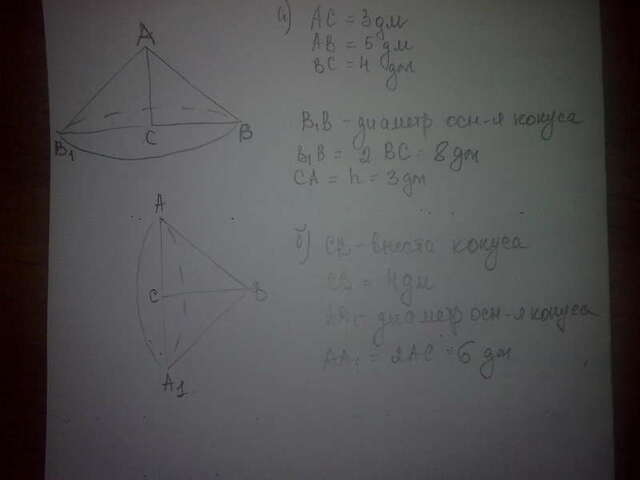 а) AC = 3 дм
AB = 5 дм
BC = 4 дм
A
B₁
C
B
B₁B - диаметр осн-я конуса
B₁B = 2 BC = 8 дм
CA = h = 3 дм
A
C
B
A₁
б) CB - высота конуса
CB = 4 дм
AA₁ - диаметр осн-я конуса
AA₁ = 2AC = 6 дм